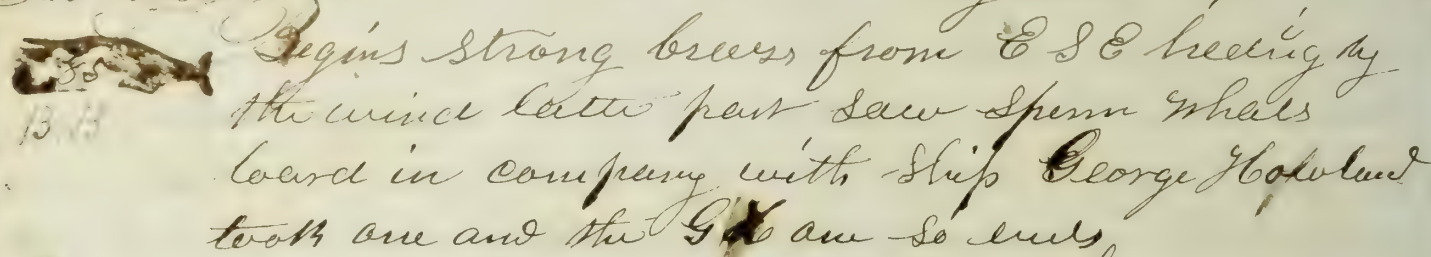 Begins strong breess from E S E heeding by
the wind latter part saw sperm Whals
loard in company with ship George Howland
took one and the G H one so ends
35